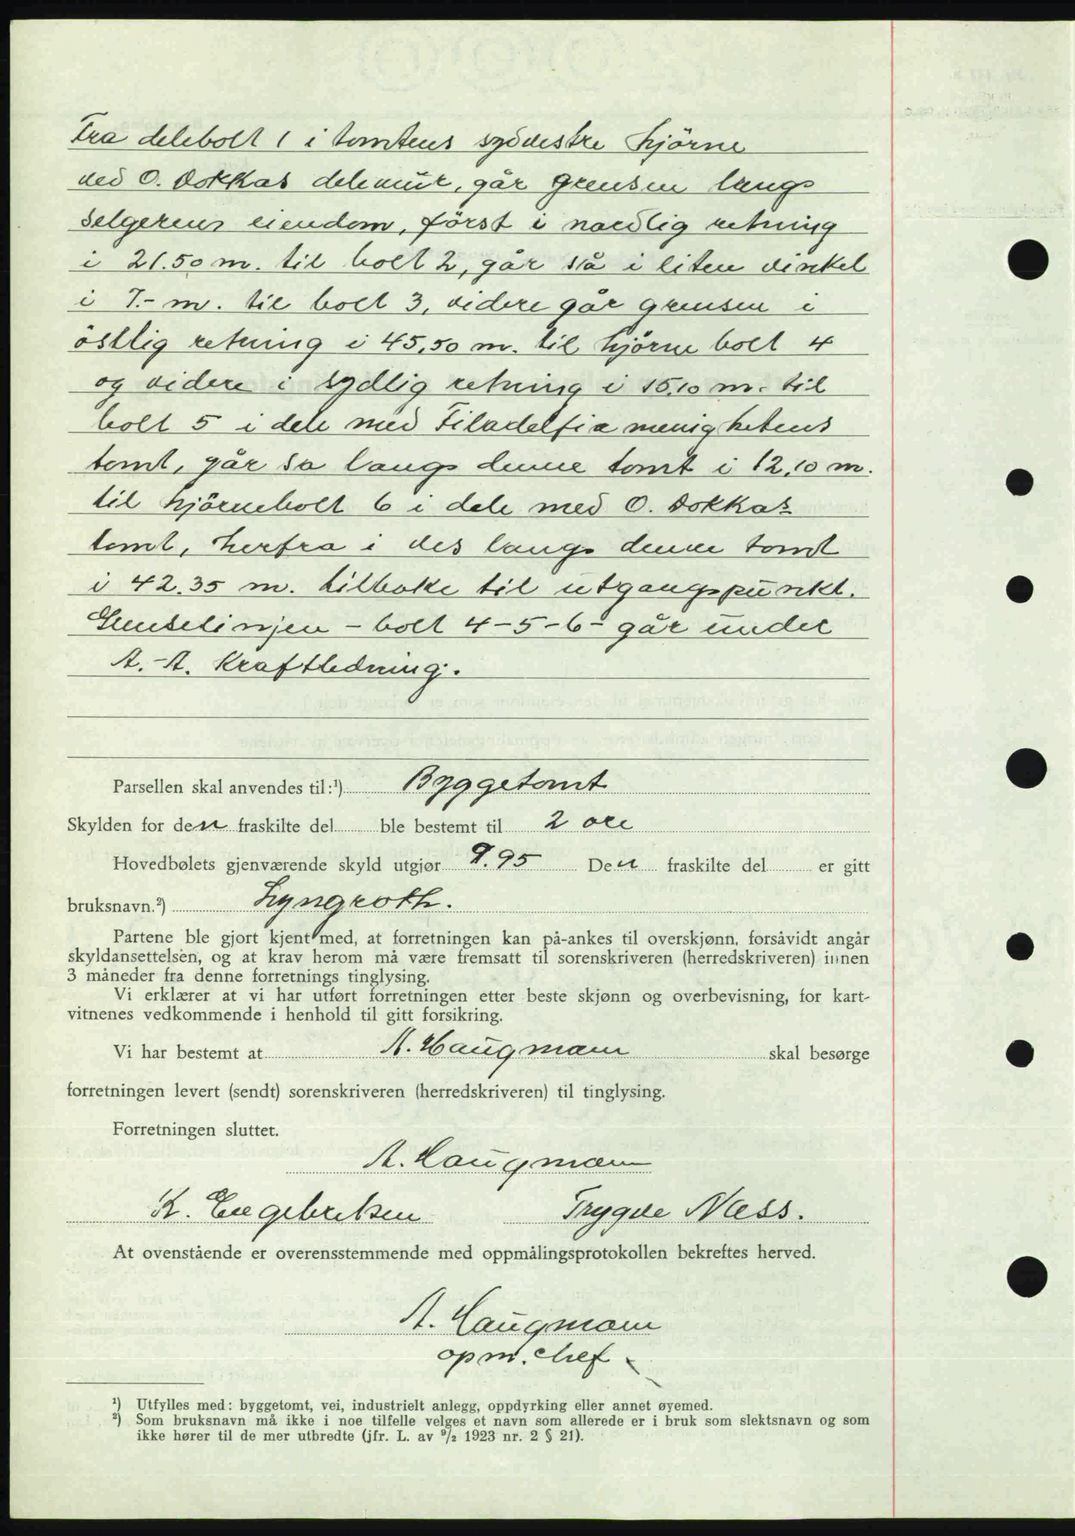 Fra delebolt 1 i tomtens sydvestre hjörne
ved O. Dokkas delemur, går grensen langs
selgerens eiendom, först i nordlig retning
i 21.50 m. til bolt 2, går så i liten vinkel
i 7.- m. til bolt 3, videre går grensen i
östlig retning i 45,50 m. til hjörne bolt 4
og videre i sydlig retning i 15,10 m. til
bolt 5 i dele med Filadelfia menighetens
tomt, går så langs denne tomt i 12,10 m.
til hjörnebolt 6 i dele med O. Dokkas
tomt, herfra i ves langs denne tomt
i 42.35 m. tilbake til utgangspunkt.
Genselinjen – bolt 4-5-6- går under
A.-A. Kraftledning.
Parsellen skal anvendes til:¹) Byggetomt
Skylden for den fraskilte del ble bestemt til 2 øre
Hovedbølets gjenværende skyld utgjør 9.95 Den fraskilte del er gitt
bruksnavn.²) Lyngroth.
Partene ble gjort kjent med, at forretningen kan på-ankes til overskjønn, forsåvidt angår
skyldansettelsen, og at krav herom må være fremsatt til sorenskriveren (herredskriveren) innen
3 måneder fra denne forretnings tinglysing.
Vi erklærer at vi har utført forretningen etter beste skjønn og overbevisning, for kart-
vitnenes vedkommende i henhold til gitt forsikring.
Vi har bestemt at A. Haugmoen skal besørge
forretningen levert (sendt) sorenskriveren (herredskriveren) til tinglysing.
Forretningen sluttet.
A. Haugmoen
K. Engebretsen Trygve Næss.
At ovenstående er overensstemmende med oppmålingsprotokollen bekreftes herved.
A. Haugmoen
opm. chef
¹) Utfylles med: byggetomt, vei, industrielt anlegg, oppdyrking eller annet øyemed.
²) Som bruksnavn må ikke i noe tilfelle velges et navn som allerede er i bruk som slektsnavn og som
ikke hører til de mer utbredte (jfr. L. av 9/2 1923 nr. 2 § 21).